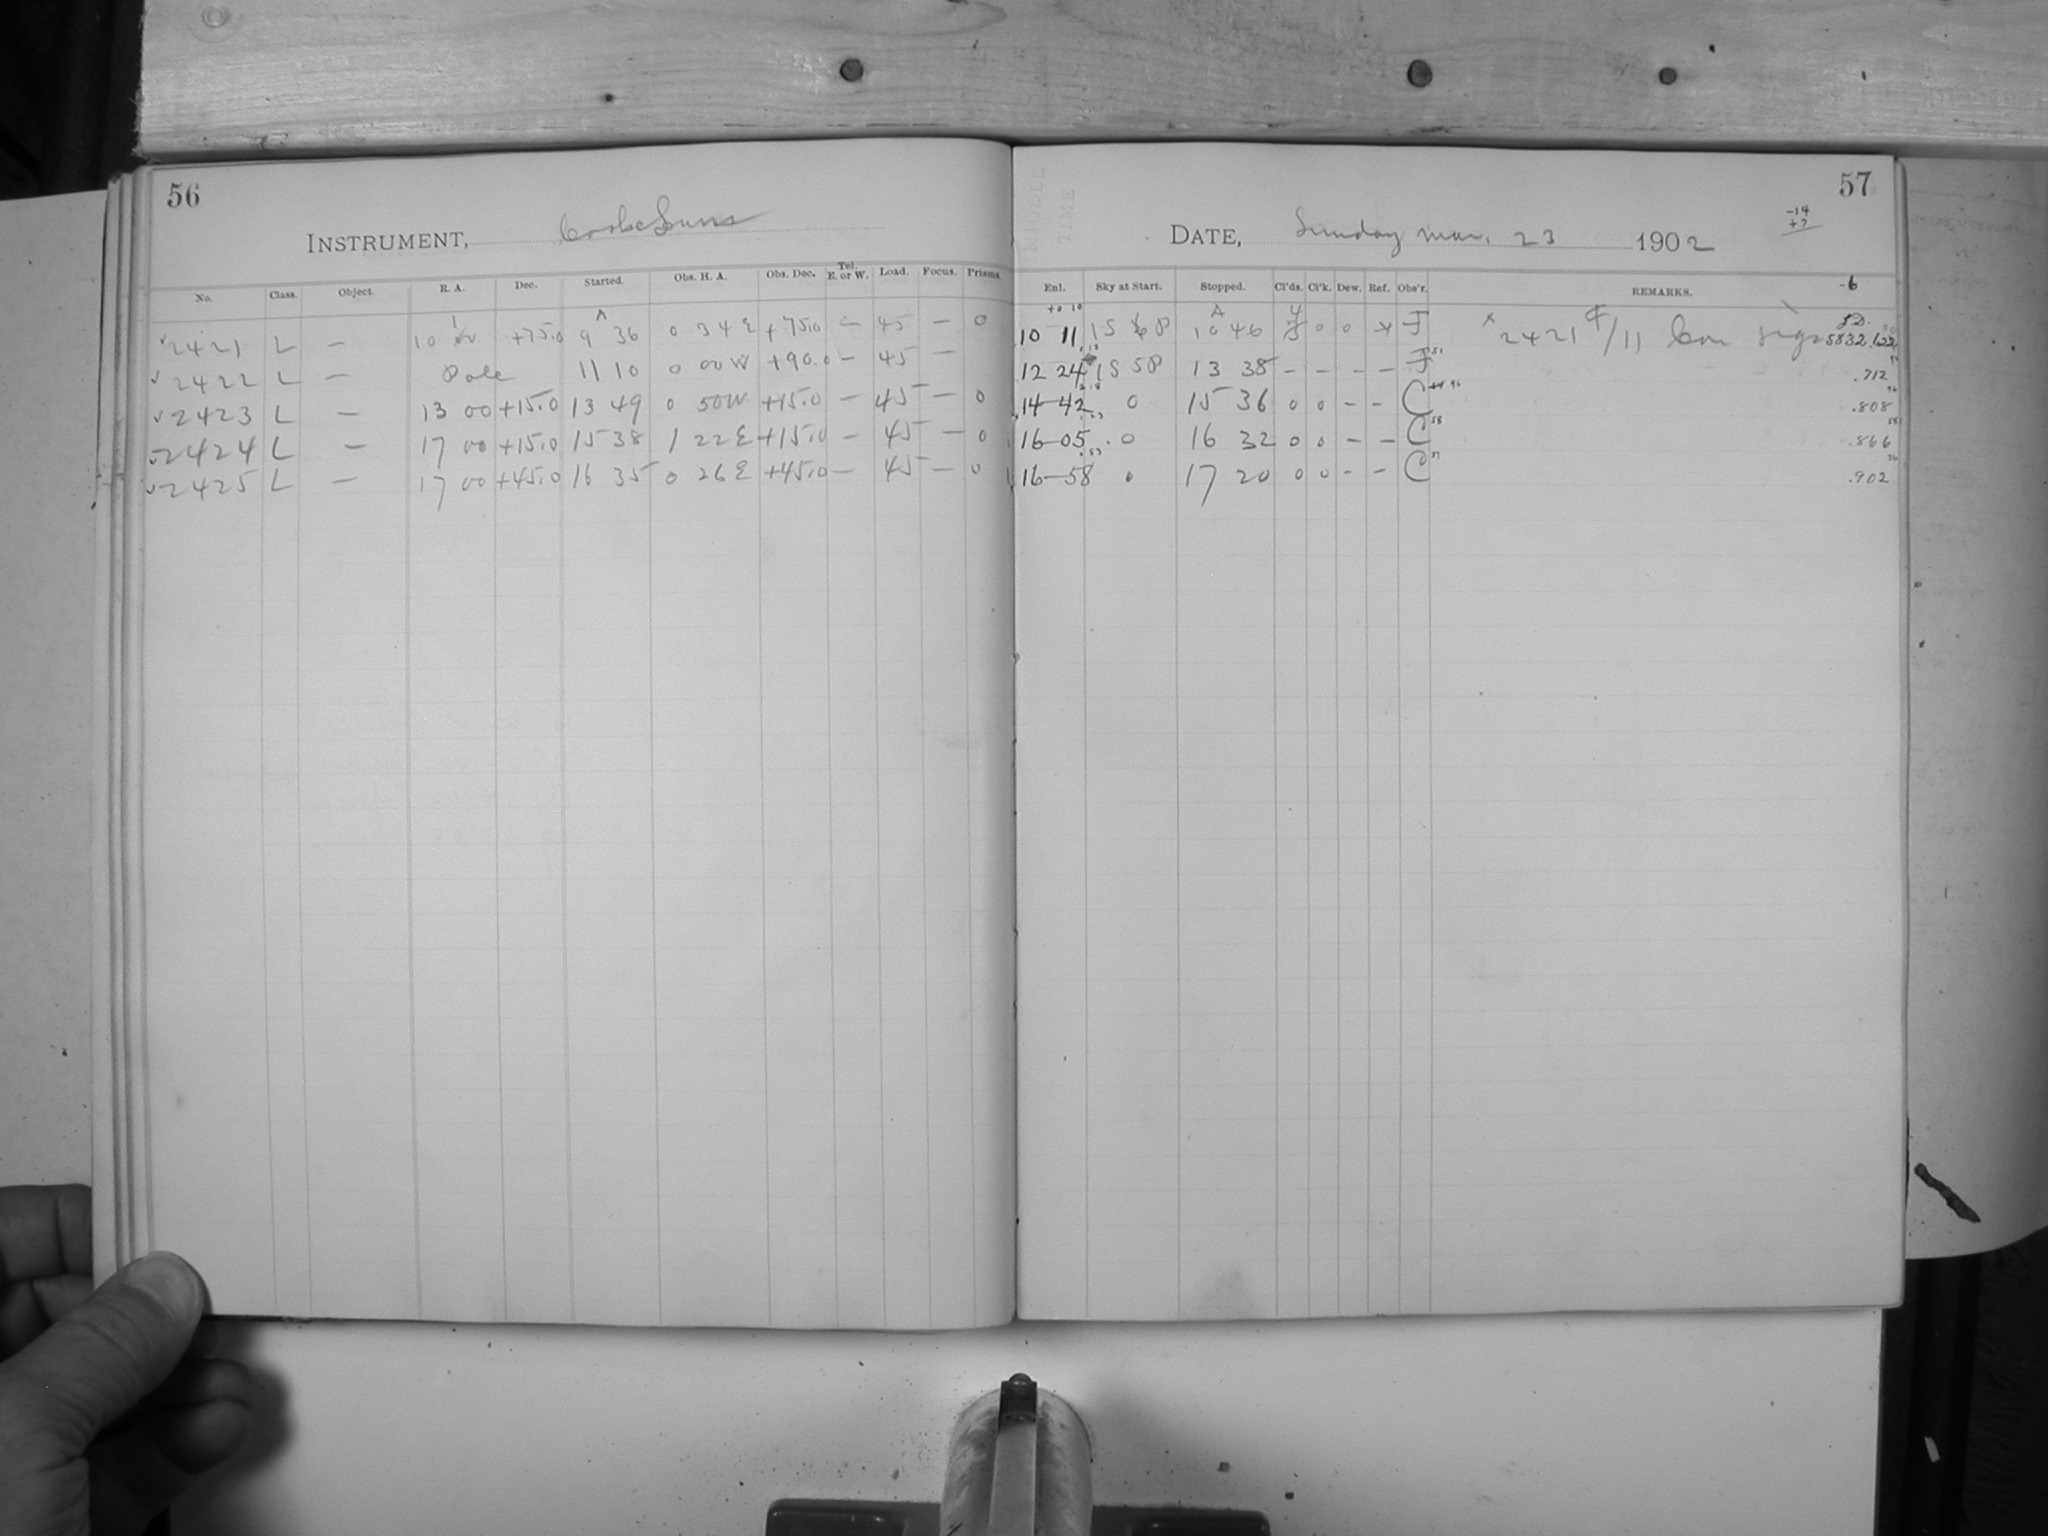 56
INSTRUMENT, Cooke Lens
No. Class. Object. R. A. Dec. Started. Obs. H. A. Obs. Dec. Tel. E. or W. Load. Focus. Prisms.
2421 L — 10 +75.0 9 36 0 34 E +75.0 — 45 — 0
2422 L — Pole 11 10 0 00 W +90.0 — 45 —
2423 L — 13 00 +15.0 13 49 0 50 W +15.0 — 45 — 0
2424 L — 17 00 +15.0 15 38 1 22 E +15.0 — 45 — 0
2425 L — 17 00 +45.0 16 35 0 26 E +45.0 — 45 — 0
57
-14
+7
DATE, Sunday Mar. 23 1902
-6
Enl. Sky at Start. Stopped. Cl'ds. Cl'k. Dew. Ref. Obs'r. REMARKS.
J.D.
10 11 1S 6P 10 46 0 0 J 2421 /11 5832.622
12 24 1S 5P 13 38 — — — — J .712
14-42 0 15 36 0 0 — — C .808
16-05 0 16 32 0 0 — — C .866
16-58 0 17 20 0 0 — — C .902